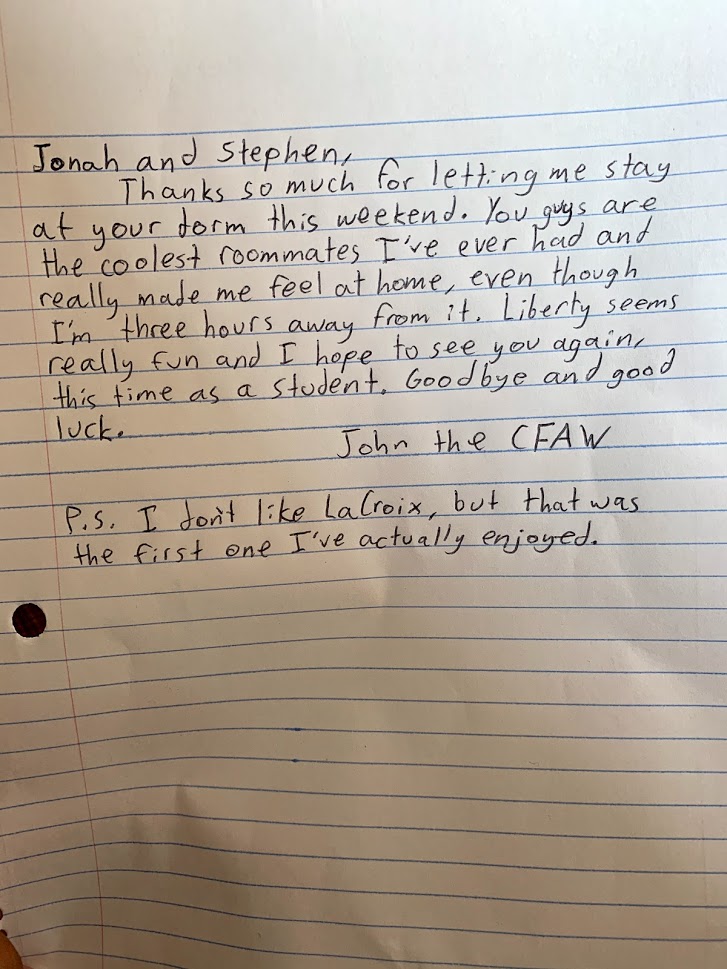 Jonah and Stephen,
Thanks so much for letting me stay
at your dorm this weekend. You guys are
the coolest roommates I've ever had and
really made me feel at home, even though
I'm three hours away from it. Liberty seems
really fun and I hope to see you again,
this time as a student. Goodbye and good
luck.
John the CFAW
P.S. I don't like LaCroix, but that was
the first one I've actually enjoyed.